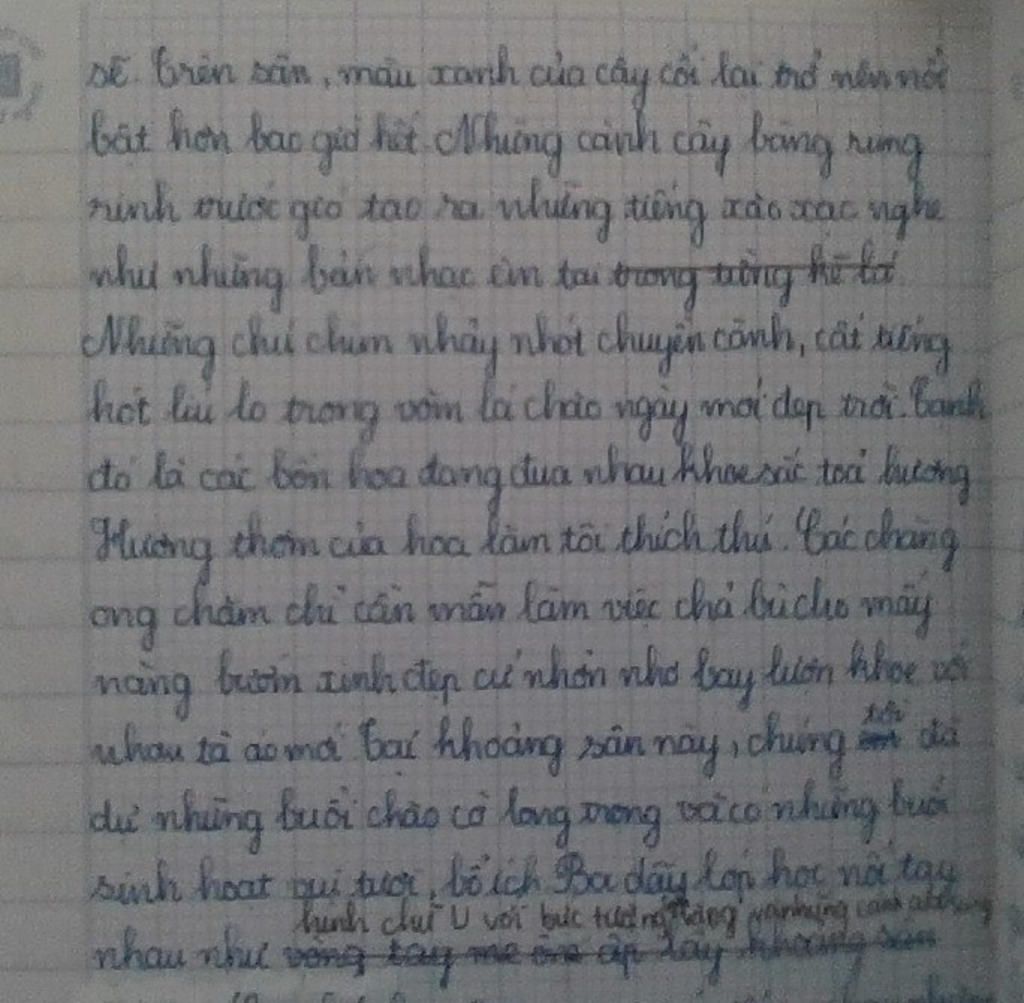 sẽ. Trên sân, màu xanh của cây cối lại trở nên nổi
bật hơn bao giờ hết. Những cành cây bàng rung
rinh trước gió tạo ra những tiếng xào xạc nghe
như những bản nhạc êm tai trong tiếng hè
Những chú chim nhảy nhót chuyền cành, cất tiếng
hót líu lo trong vòm lá chào ngày mới đẹp trời. Cạnh
đó là các bồn hoa đang đua nhau khoe sắc toả hương
Hương thơm của hoa làm tôi thích thú. Các chàng
ong chăm chỉ cần mẫn làm việc chả bù cho mấy
nàng bướm xinh đẹp cứ nhởn nhơ bay lượn khoe với
nhau tà áo mới. Tại khoảng sân này, chúng tôi đã
dự những buổi chào cờ long trọng và có những buổi
sinh hoạt vui tươi, bổ ích. Ba dãy lớp học nối tay
hình chữ U với bức tường và những
nhau như vòng tay mẹ ôm ấp lấy khoảng sân